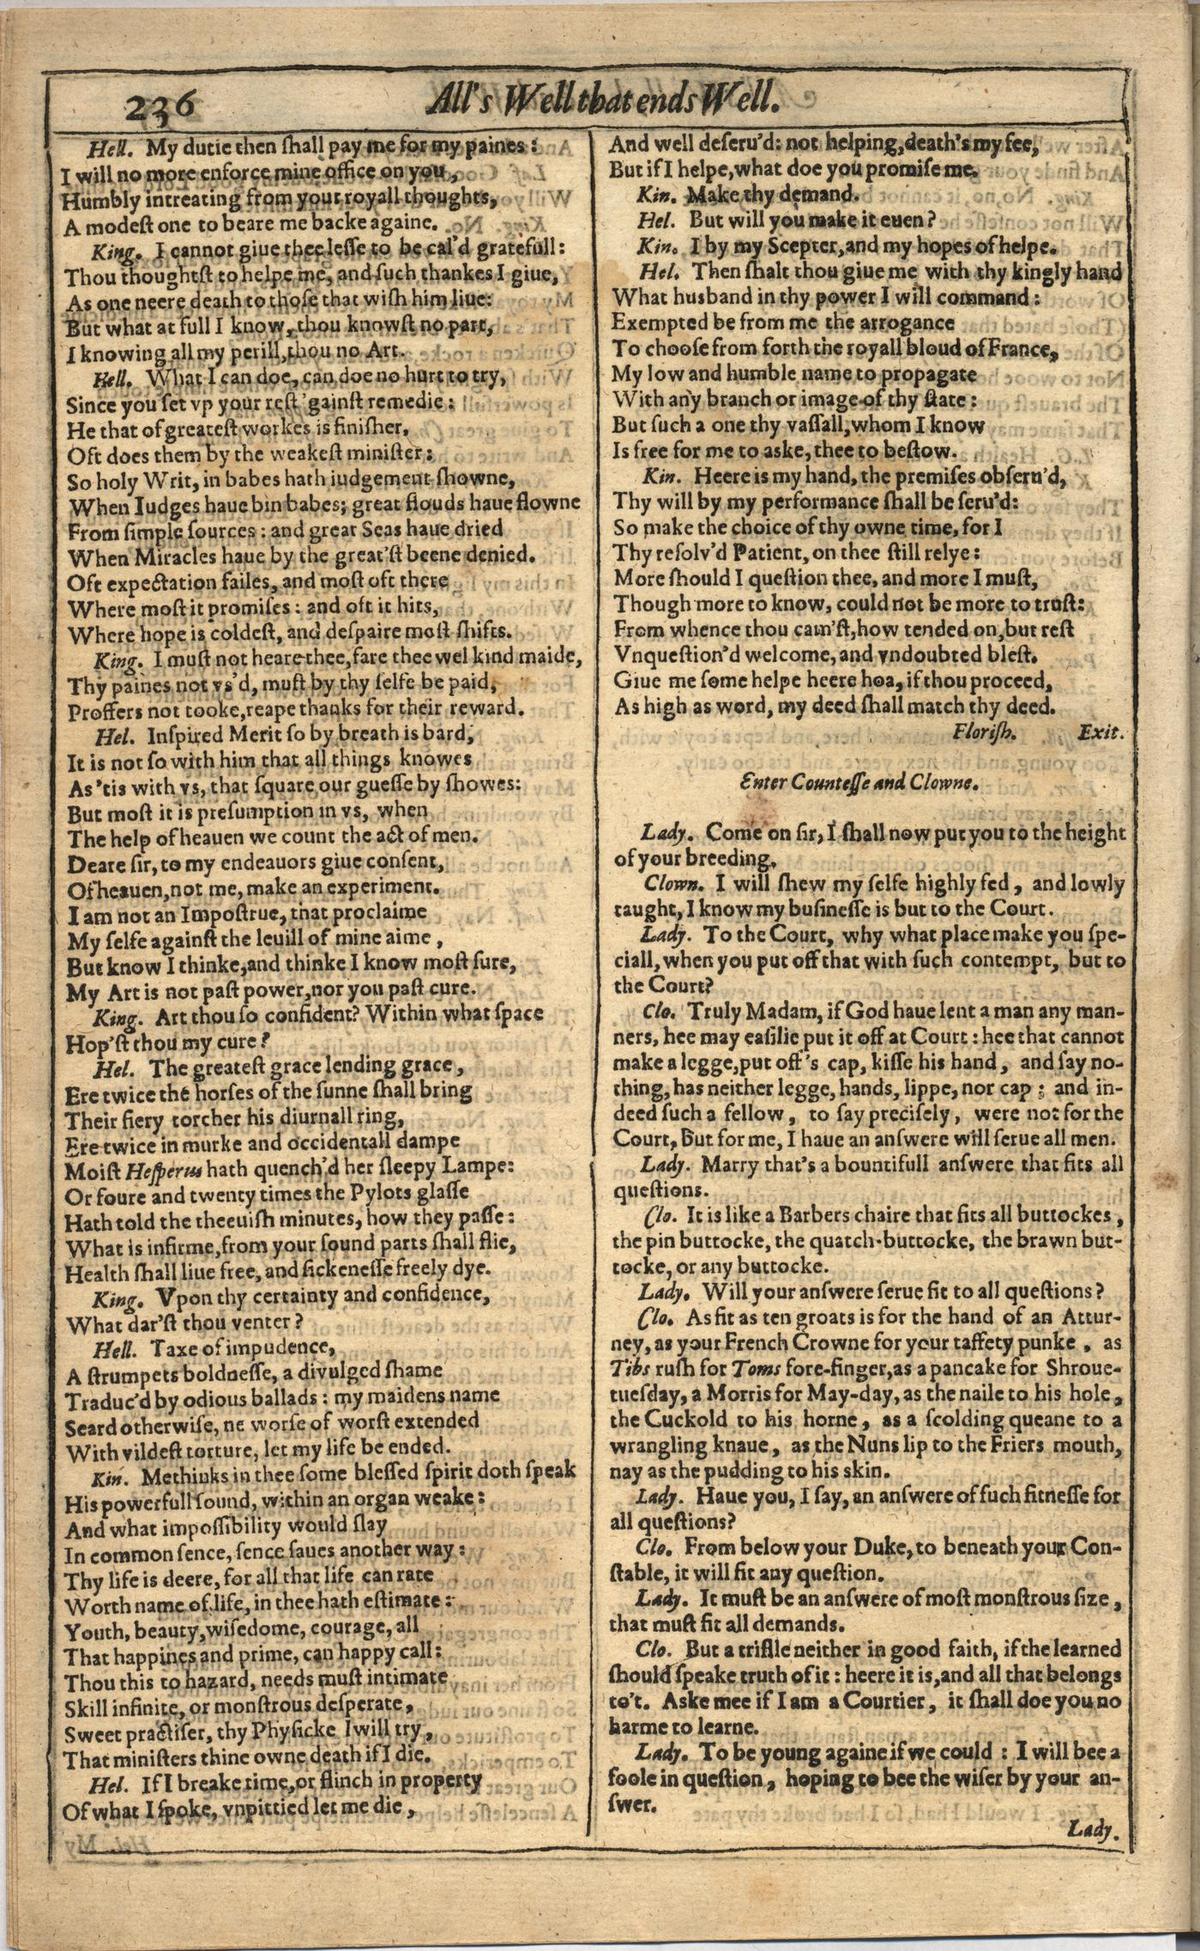 236
All's Well that ends Well.
Hell. My dutie then ſhall pay me for my paines:
I will no more enforce mine office on you,
Humbly intreating from your royall thoughts,
A modeſt one to beare me backe againe.
King. I cannot giue thee leſſe to be cal'd gratefull:
Thou thoughtſt to helpe me, and ſuch thankes I giue,
As one neere death to thoſe that wiſh him liue:
But what at full I know, thou knowſt no part,
I knowing all my perill, thou no Art.
Hell. What I can doe, can doe no hurt to try,
Since you ſet vp your reſt 'gainſt remedie:
He that of greateſt workes is finiſher,
Oft does them by the weakeſt miniſter:
So holy Writ, in babes hath iudgement ſhowne,
When Iudges haue bin babes; great flouds haue flowne
From ſimple ſources: and great Seas haue dried
When Miracles haue by the great'ſt beene denied.
Oft expectation failes, and moſt oft there
Where moſt it promiſes: and oft it hits,
Where hope is coldeſt, and deſpaire moſt ſhifts.
King. I muſt not heare thee, fare thee wel kind maide,
Thy paines not vs'd, muſt by thy ſelfe be paid,
Proffers not tooke, reape thanks for their reward.
Hel. Inſpired Merit ſo by breath is bard,
It is not ſo with him that all things knowes
As 'tis with vs, that ſquare our gueſſe by ſhowes:
But moſt it is preſumption in vs, when
The help of heauen we count the act of men.
Deare ſir, to my endeauors giue conſent,
Of heauen, not me, make an experiment.
I am not an Impoſtrue, that proclaime
My ſelfe againſt the leuill of mine aime,
But know I thinke, and thinke I know moſt ſure,
My Art is not paſt power, nor you paſt cure.
King. Art thou ſo confident? Within what ſpace
Hop'ſt thou my cure?
Hel. The greateſt grace lending grace,
Ere twice the horſes of the ſunne ſhall bring
Their fiery torcher his diurnall ring,
Ere twice in murke and occidentall dampe
Moiſt Heſperus hath quench'd her ſleepy Lampe:
Or foure and twenty times the Pylots glaſſe
Hath told the theeuiſh minutes, how they paſſe:
What is infirme, from your ſound parts ſhall flie,
Health ſhall liue free, and ſickeneſſe freely dye.
King. Vpon thy certainty and confidence,
What dar'ſt thou venter?
Hell. Taxe of impudence,
A ſtrumpets boldneſſe, a divulged ſhame
Traduc'd by odious ballads: my maidens name
Seard otherwiſe, ne worſe of worſt extended
With vildeſt torture, let my life be ended.
Kin. Methinks in thee ſome bleſſed ſpirit doth ſpeak
His powerfull ſound, within an organ weake:
And what impoſſibility would ſlay
In common ſence, ſence ſaues another way:
Thy life is deere, for all that life can rate
Worth name of life, in thee hath eſtimate:
Youth, beauty, wiſedome, courage, all
That happines and prime, can happy call:
Thou this to hazard, needs muſt intimate
Skill infinite, or monſtrous deſperate,
Sweet practiſer, thy Phyſicke I will try,
That miniſters thine owne death if I die.
Hel. If I breake time, or flinch in property
Of what I ſpoke, vnpittied let me die,
And well deſeru'd: not helping, death's my fee,
But if I helpe, what doe you promiſe me.
Kin. Make thy demand.
Hel. But will you make it euen?
Kin. I by my Scepter, and my hopes of helpe.
Hel. Then ſhalt thou giue me with thy kingly hand
What husband in thy power I will command:
Exempted be from me the arrogance
To chooſe from forth the royall bloud of France,
My low and humble name to propagate
With any branch or image of thy ſtate:
But ſuch a one thy vaſſall, whom I know
Is free for me to aske, thee to beſtow.
Kin. Heere is my hand, the premiſes obſeru'd,
Thy will by my performance ſhall be ſeru'd:
So make the choice of thy owne time, for I
Thy reſolv'd Patient, on thee ſtill relye:
More ſhould I queſtion thee, and more I muſt,
Though more to know, could not be more to truſt:
From whence thou cam'ſt, how tended on, but reſt
Vnqueſtion'd welcome, and vndoubted bleſt.
Giue me ſome helpe heere hoa, if thou proceed,
As high as word, my deed ſhall match thy deed.
Floriſh. Exit.
Enter Counteſſe and Clowne.
Lady. Come on ſir, I ſhall now put you to the height
of your breeding.
Clown. I will ſhew my ſelfe highly fed, and lowly
taught, I know my buſineſſe is but to the Court.
Lady. To the Court, why what place make you ſpe-
ciall, when you put off that with ſuch contempt, but to
the Court?
Clo. Truly Madam, if God haue lent a man any man-
ners, hee may eaſilie put it off at Court: hee that cannot
make a legge, put off's cap, kiſſe his hand, and ſay no-
thing, has neither legge, hands, lippe, nor cap; and in-
deed ſuch a fellow, to ſay preciſely, were not for the
Court, but for me, I haue an anſwere will ſerue all men.
Lady. Marry that's a bountifull anſwere that fits all
queſtions.
Clo. It is like a Barbers chaire that fits all buttockes,
the pin buttocke, the quatch-buttocke, the brawn but-
tocke, or any buttocke.
Lady. Will your anſwere ſerue fit to all queſtions?
Clo. As fit as ten groats is for the hand of an Attur-
ney, as your French Crowne for your taffety punke, as
Tibs ruſh for Toms fore-finger, as a pancake for Shroue-
tueſday, a Morris for May-day, as the naile to his hole,
the Cuckold to his horne, as a ſcolding queane to a
wrangling knaue, as the Nuns lip to the Friers mouth,
nay as the pudding to his skin.
Lady. Haue you, I ſay, an anſwere of ſuch fitneſſe for
all queſtions?
Clo. From below your Duke, to beneath your Con-
ſtable, it will fit any queſtion.
Lady. It muſt be an anſwere of moſt monſtrous ſize,
that muſt fit all demands.
Clo. But a triflle neither in good faith, if the learned
ſhould ſpeake truth of it: heere it is, and all that belongs
to't. Aske mee if I am a Courtier, it ſhall doe you no
harme to learne.
Lady. To be young againe if we could: I will bee a
foole in queſtion, hoping to bee the wiſer by your an-
ſwer.
Lady.